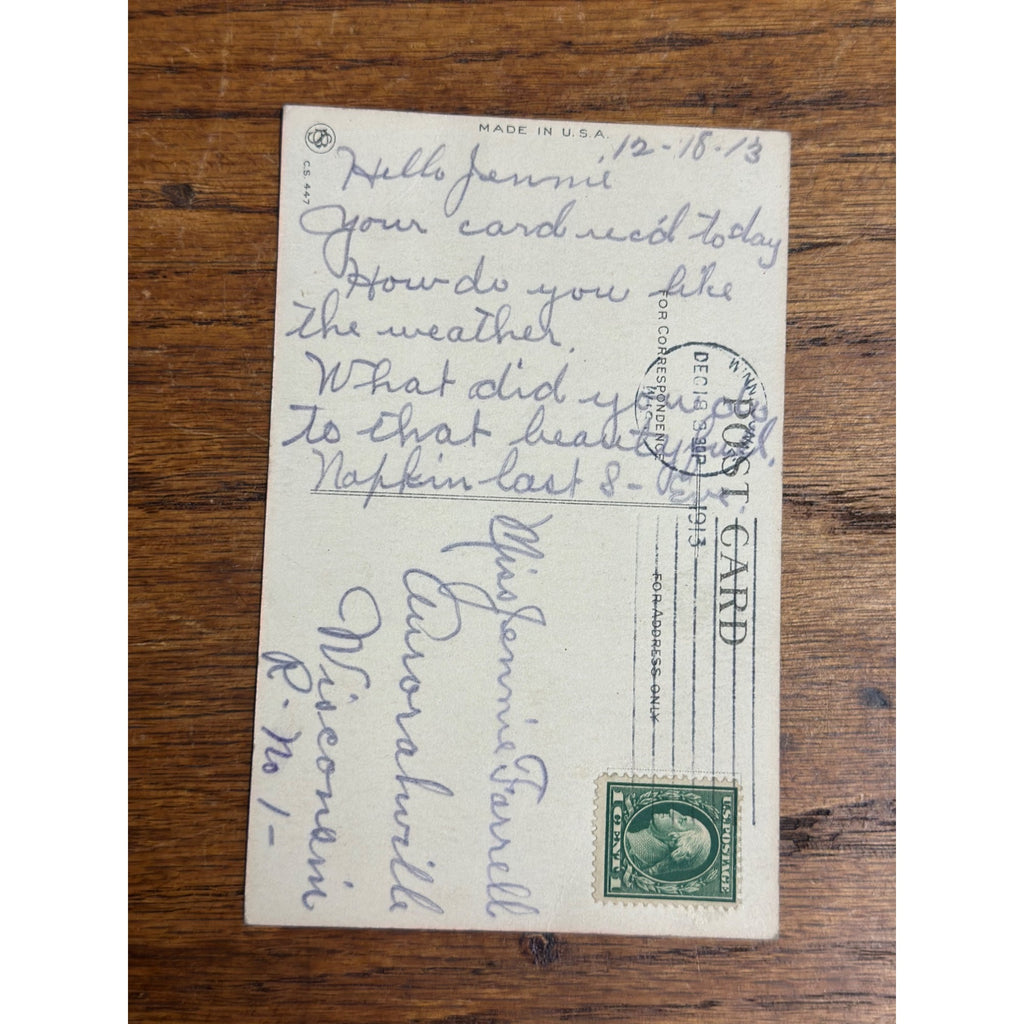 MADE IN U.S.A.
C.S. 447
12-18-13
Hello Jennie
Your card rec'd today
How do you like
the weather.
What did you do
to that beautyfull
Napkin last 8- Eve.
FOR CORRESPONDENCE
POST CARD
DEC 18 3 30P
1913
WIS.
FOR ADDRESS ONLY
Miss Jennie Farrell
Aurorahville
Wisconsin
R. No 1-
U.S. POSTAGE
1 CENT 1